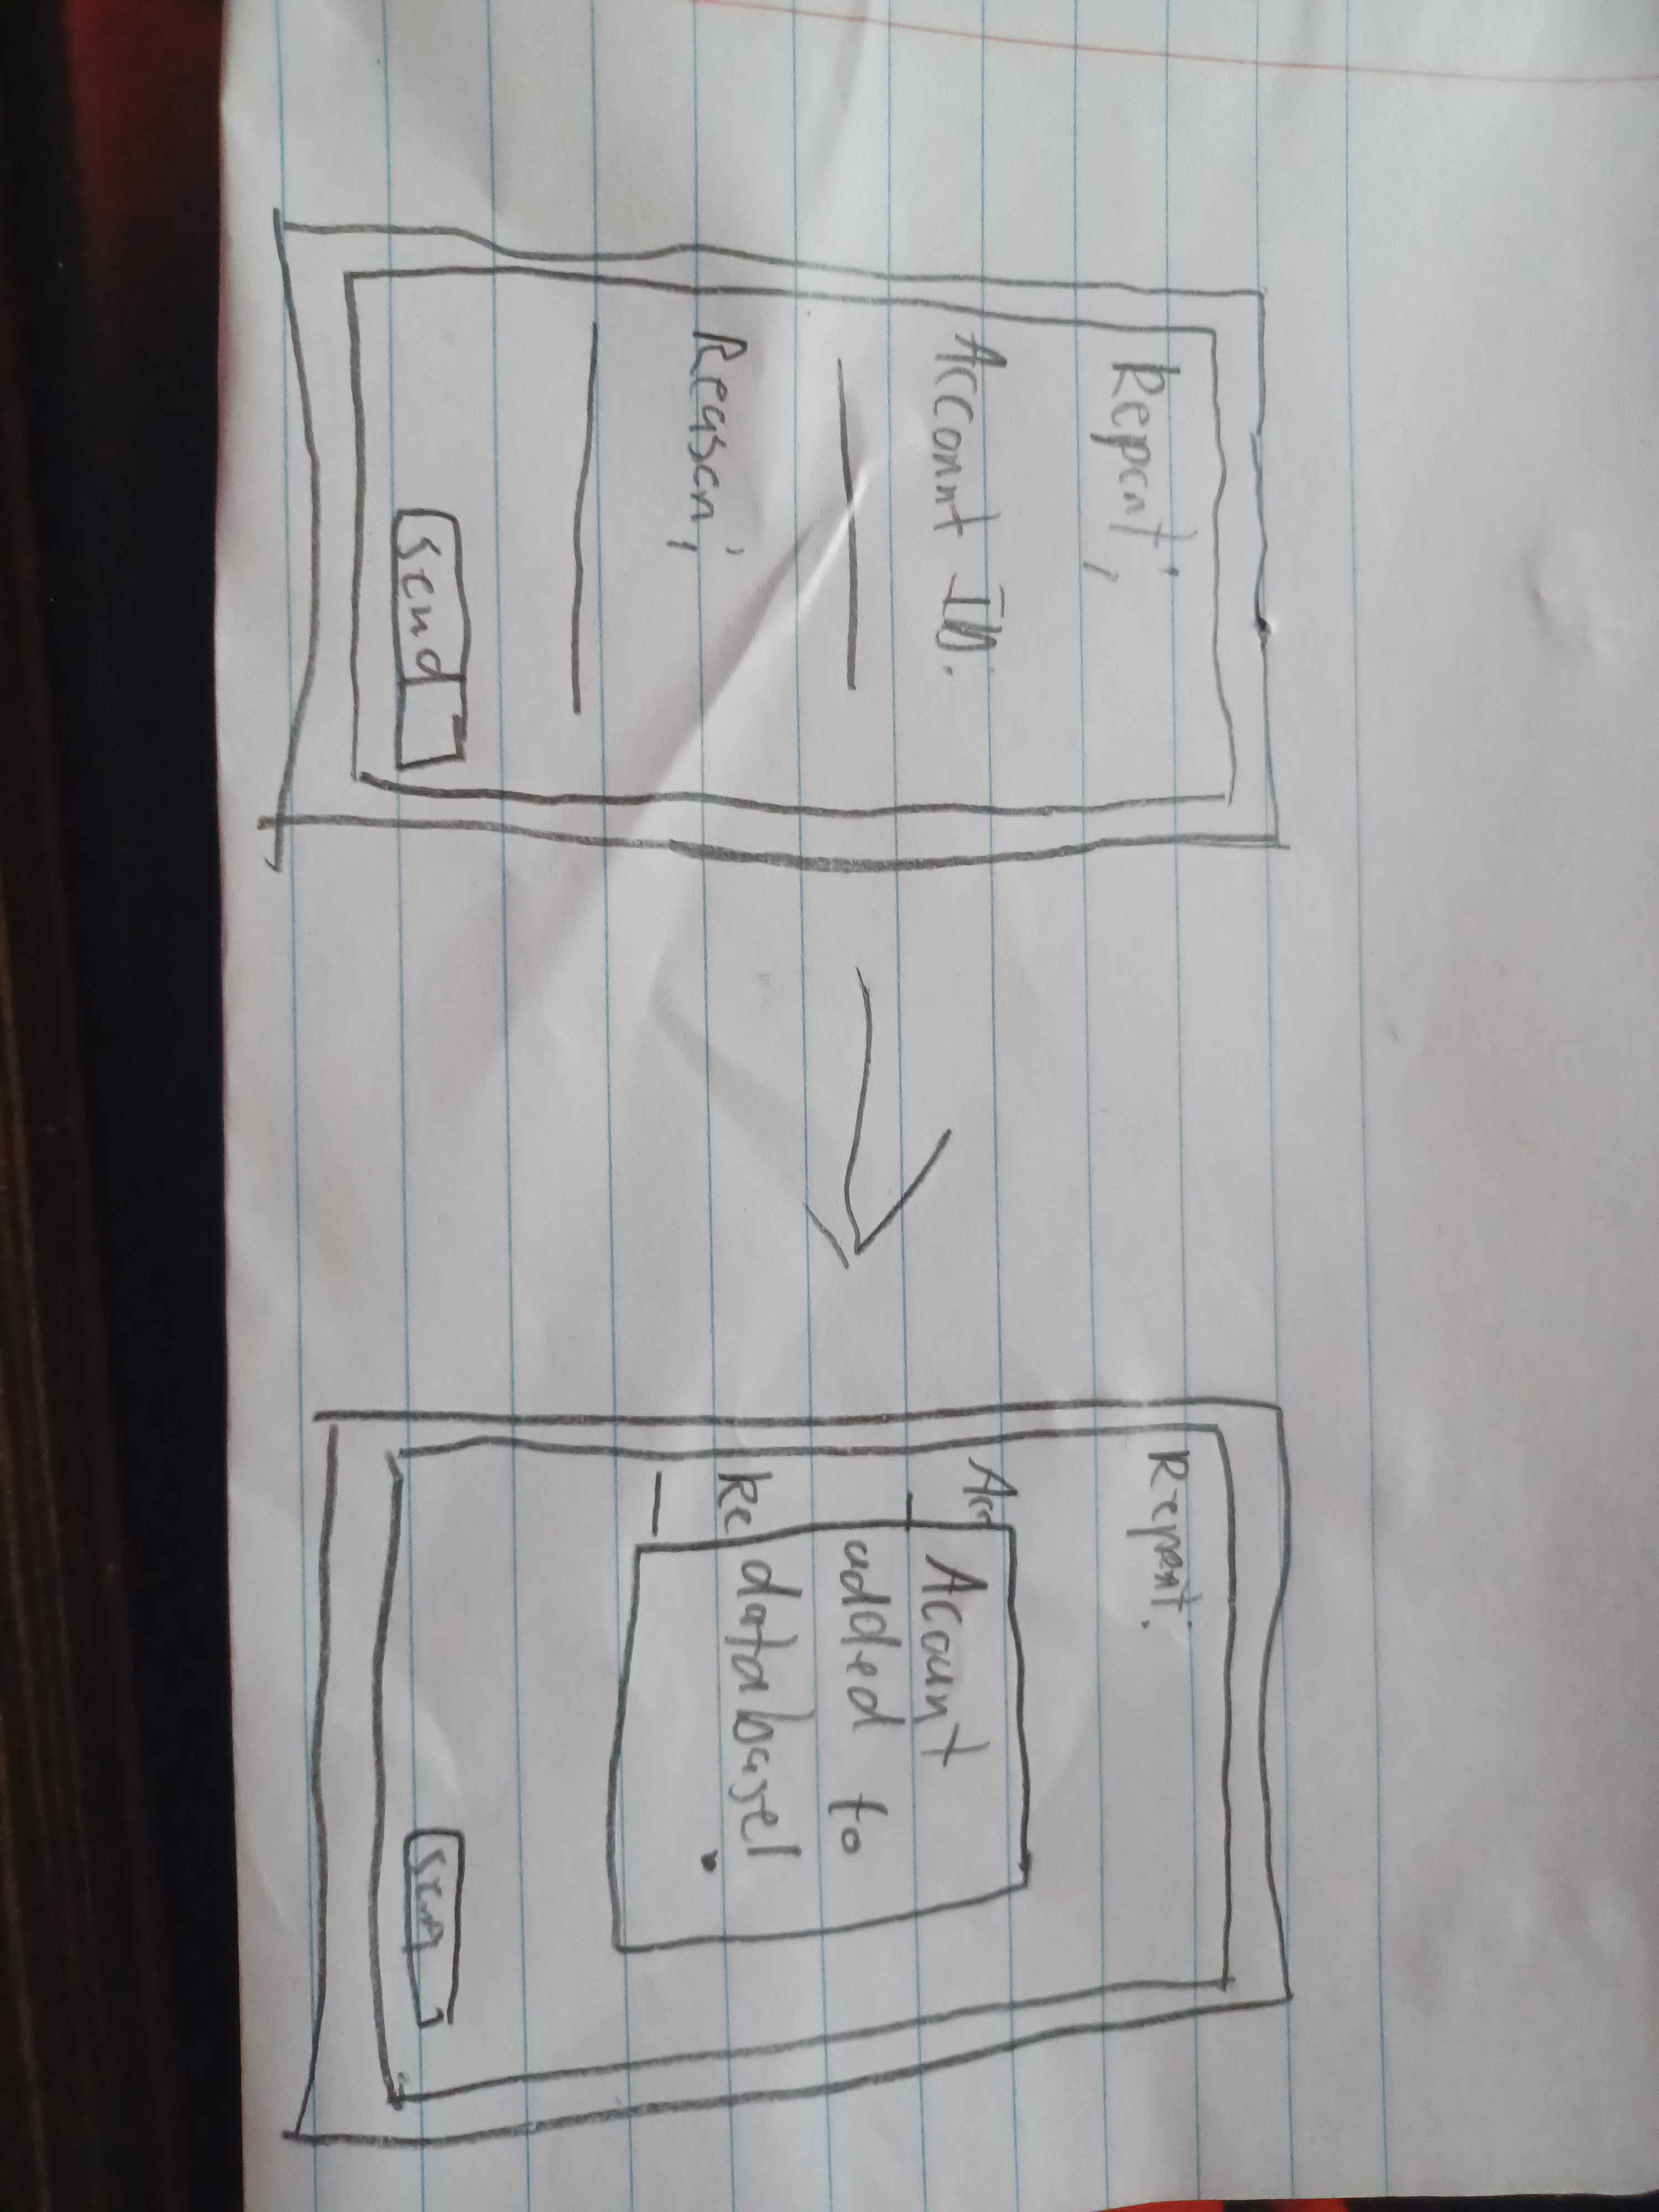 Report:
Account ID:
Reason:
Send
Report:
Acc
Account
added to
Re database!
Sen